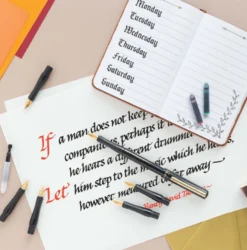 Monday
Tuesday
Wednesday
Thursday
Friday
Saturday
Sunday
If a man does not keep
companions, perhaps it
he hears a different drummer
Let him step to the music which he hears,
however measured or far away—.
Henry David